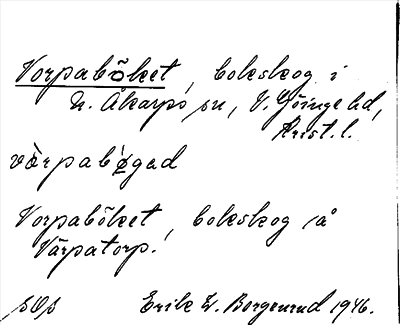 Vorpaböket, bokskog i
N. Åkarps sn, V. Göinge hd,
Krist. l.
vòrpabǿgad
Vorpaböket, bokskog på
Värpatorp.
sOs Erik W. Borgenrud 1946.